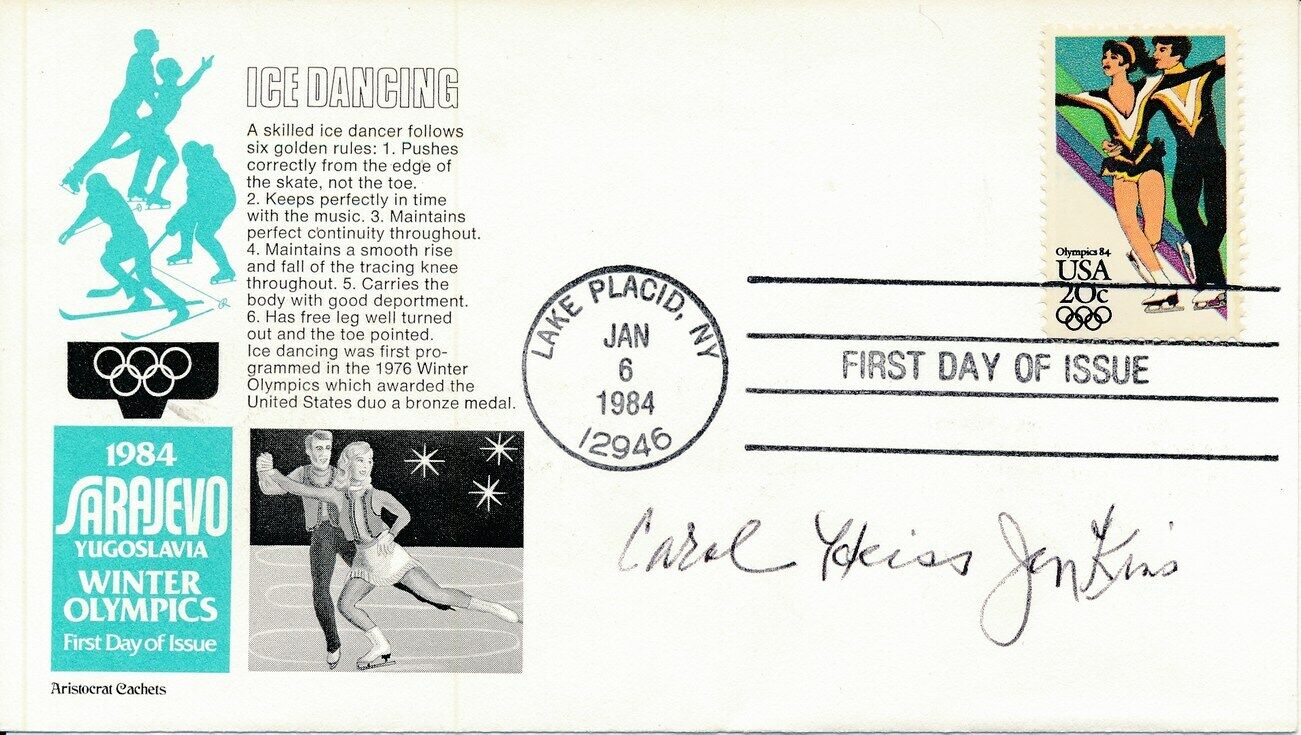 ICE DANCING
A skilled ice dancer follows
six golden rules: 1. Pushes
correctly from the edge of
the skate, not the toe.
2. Keeps perfectly in time
with the music. 3. Maintains
perfect continuity throughout.
4. Maintains a smooth rise
and fall of the tracing knee
throughout. 5. Carries the
body with good deportment.
6. Has free leg well turned
out and the toe pointed.
Ice dancing was first pro-
grammed in the 1976 Winter
Olympics which awarded the
United States duo a bronze medal.
1984
SARAJEVO
YUGOSLAVIA
WINTER
OLYMPICS
First Day of Issue
Aristocrat Cachets
Olympics 84
USA
20c
LAKE PLACID, NY
JAN
6
1984
12946
FIRST DAY OF ISSUE
Carol Heiss Jenkins